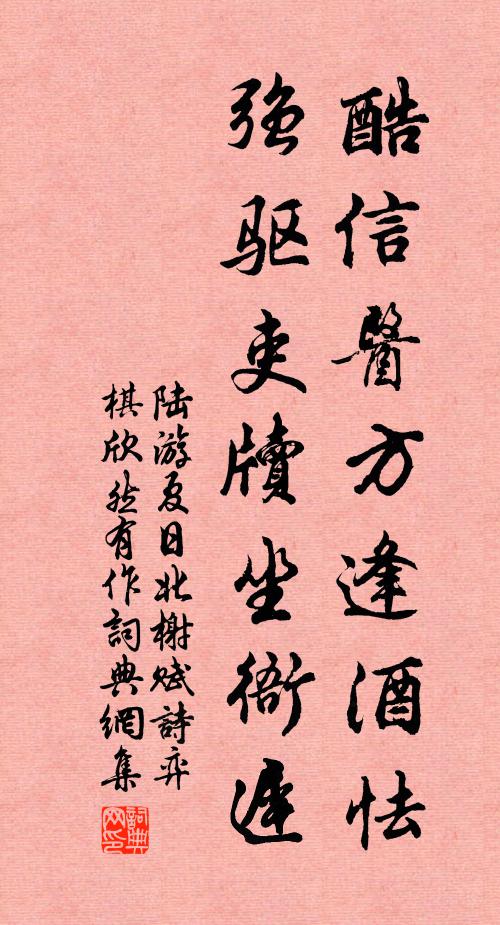 酷信醫方逢酒怯
強驱吏牘坐衙遲
陆游夏日北榭赋詩弈
棋欣然有作詞典網集
詞典網印